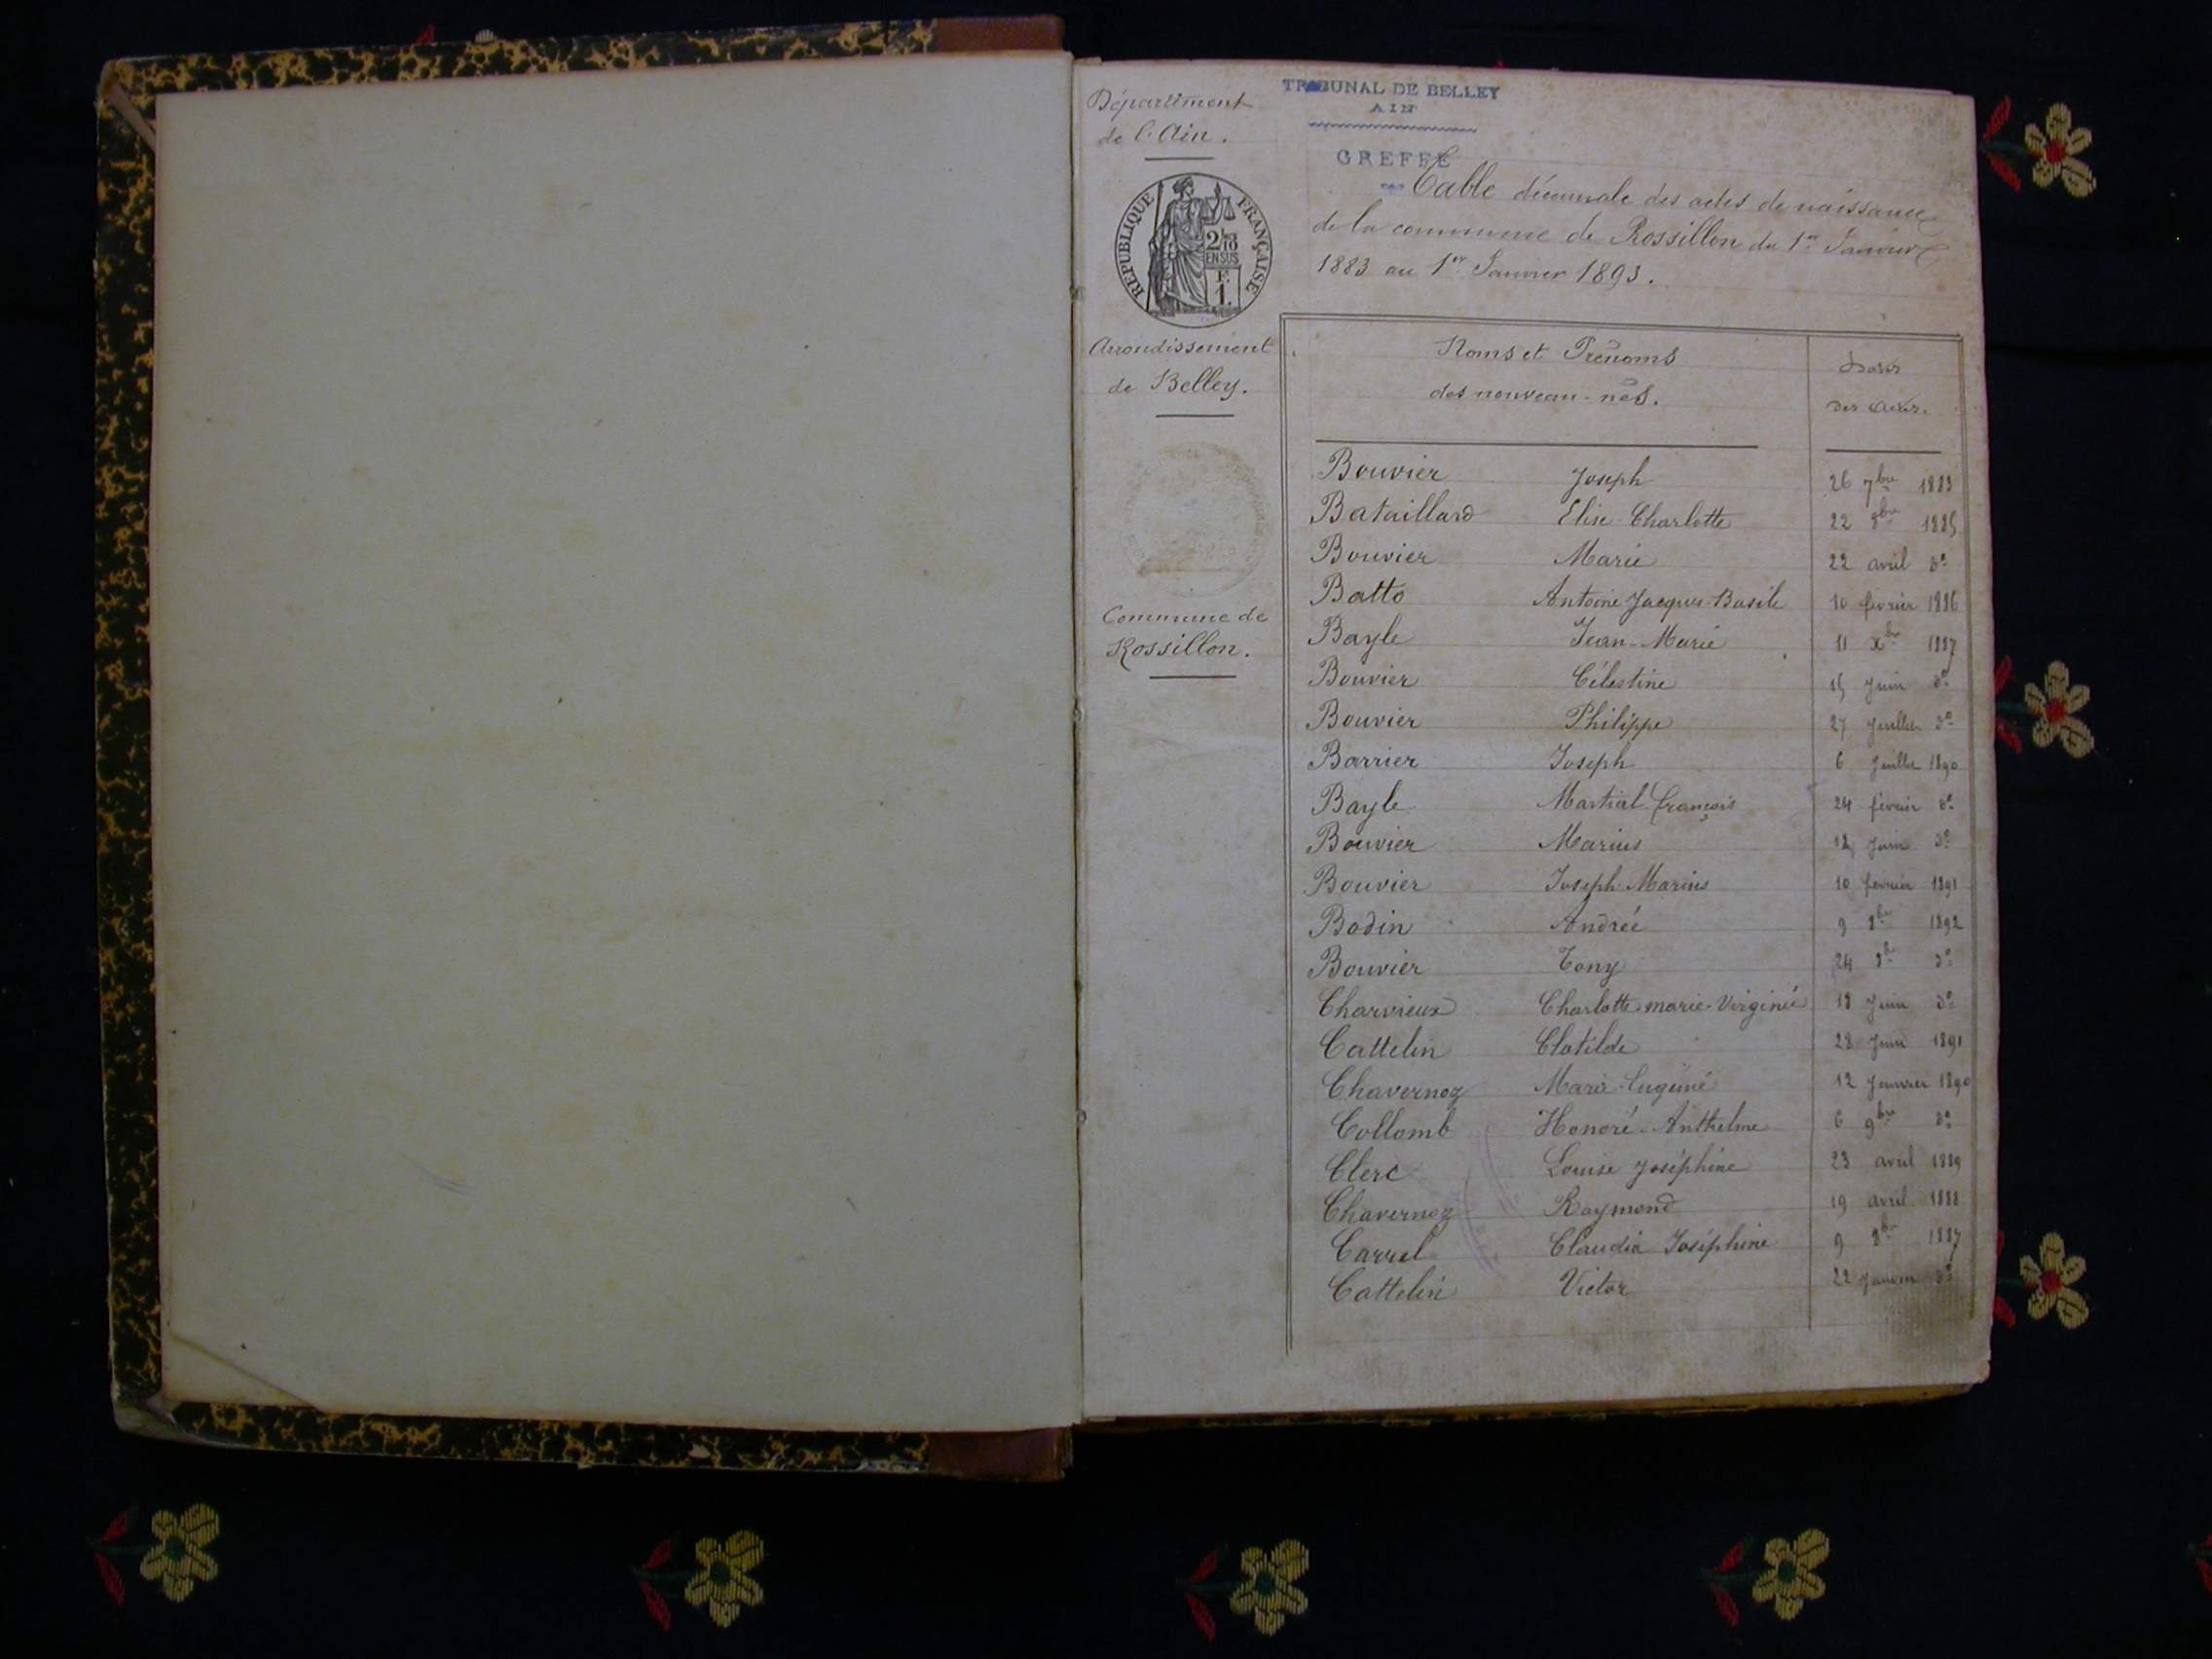 Département
de l'Ain.
REPUBLIQUE FRANÇAISE
2/10
EN SUS
F.
1.
Arrondissement
de Belley.
Commune de
Rossillon.
TRIBUNAL DE BELLEY
AIN
GREFFE
Table décennale des actes de naissance
de la commune de Rossillon du 1er Janvier
1883 au 1er Janvier 1893.
Noms et Prénoms Dates
des nouveau-nés. des actes.
Bouvier Joseph 26 7bre 1883
Bataillard Elise Charlotte 22 8bre 1885
Bouvier Marie 22 avril do
Batto Antoine Jacques Basile 10 février 1886
Bayle Jean-Marie 11 Xbre 1887
Bouvier Célestine 15 Juin do
Bouvier Philippe 27 Juillet do
Barrier Joseph 6 Juillet 1890
Bayle Martial François 24 février do
Bouvier Marius 12 Juin do
Bouvier Joseph Marius 10 février 1891
Bodin Andréé 9 8bre 1892
Bouvier Tony 24 8bre do
Charvieux Charlotte-marie-Virginie 18 Juin do
Cattelin Clotilde 28 Juin 1891
Chavernoz Marie-Eugénie 12 Janvier 1890
Collomb Honoré-Anthelme 6 9bre do
Clerc Louise Joséphine 23 avril 1889
Chavernoz Raymond 19 avril 1888
Carrel Claudia Joséphine 9 8bre 1887
Cattelin Victor 22 Janvier do